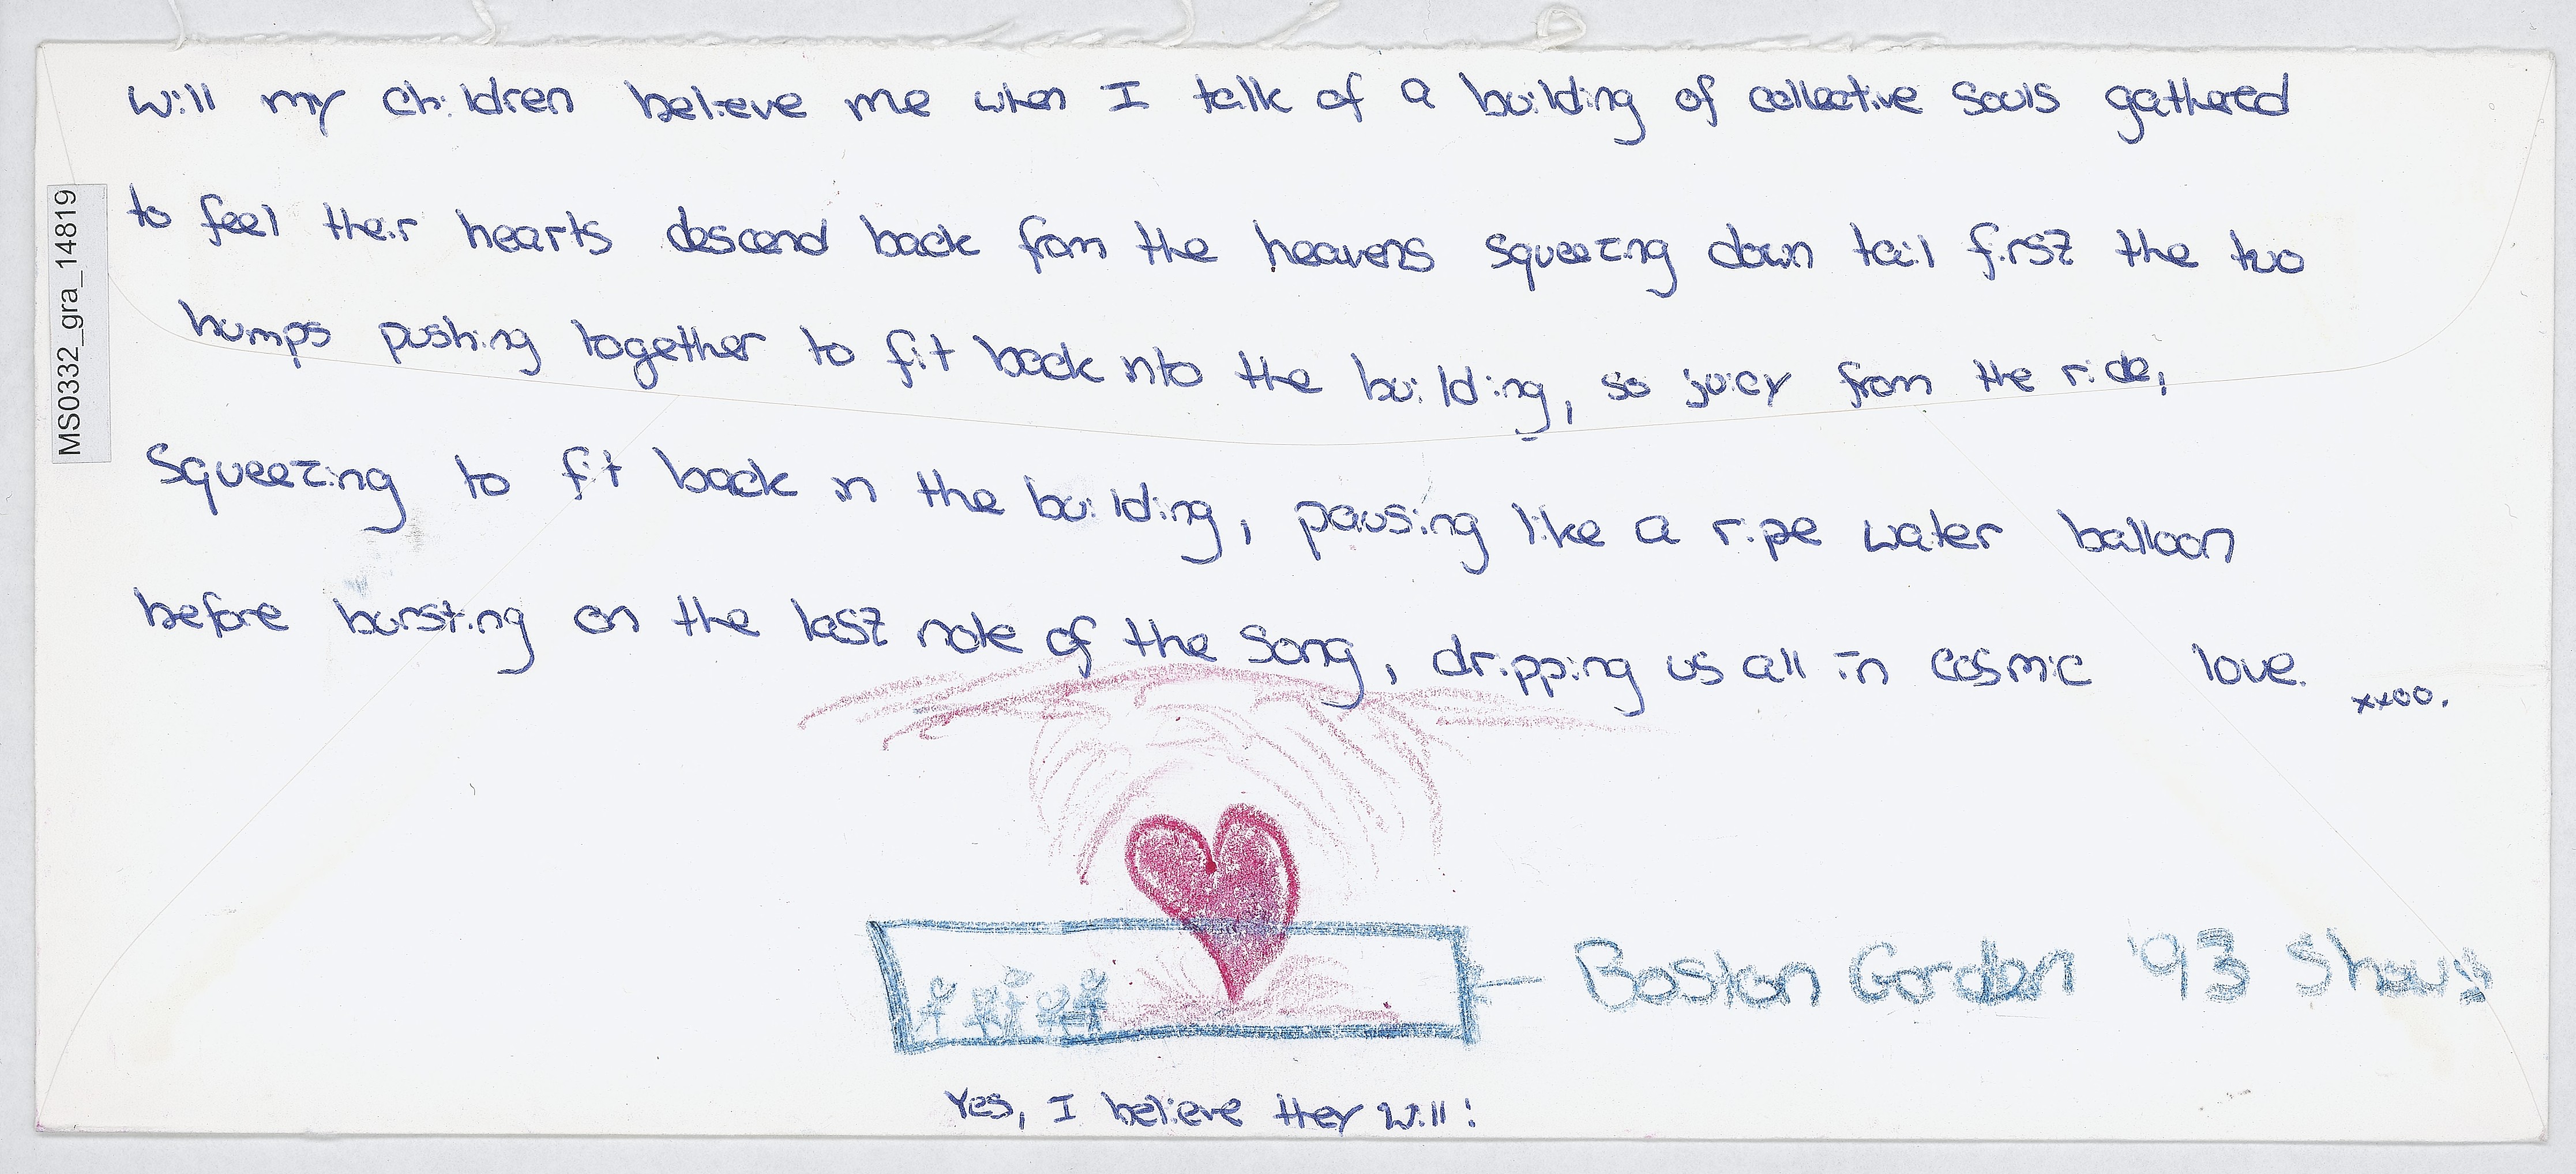 Will my children believe me when I talk of a building of collective souls gathered
to feel their hearts descend back from the heavens squeezing down tail first the two
humps pushing together to fit back into the building, so juicy from the ride,
Squeezing to fit back in the building, pausing like a ripe water balloon
before bursting on the last note of the song, dripping us all in cosmic love.
xxoo.
Boston Garden '93 Shows
Yes, I believe they will!
MS0332_gra_14819